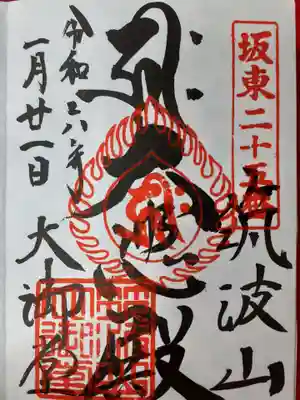 坂東二十五番
筑波山
大悲殿
大御堂
令和六年
一月廿一日